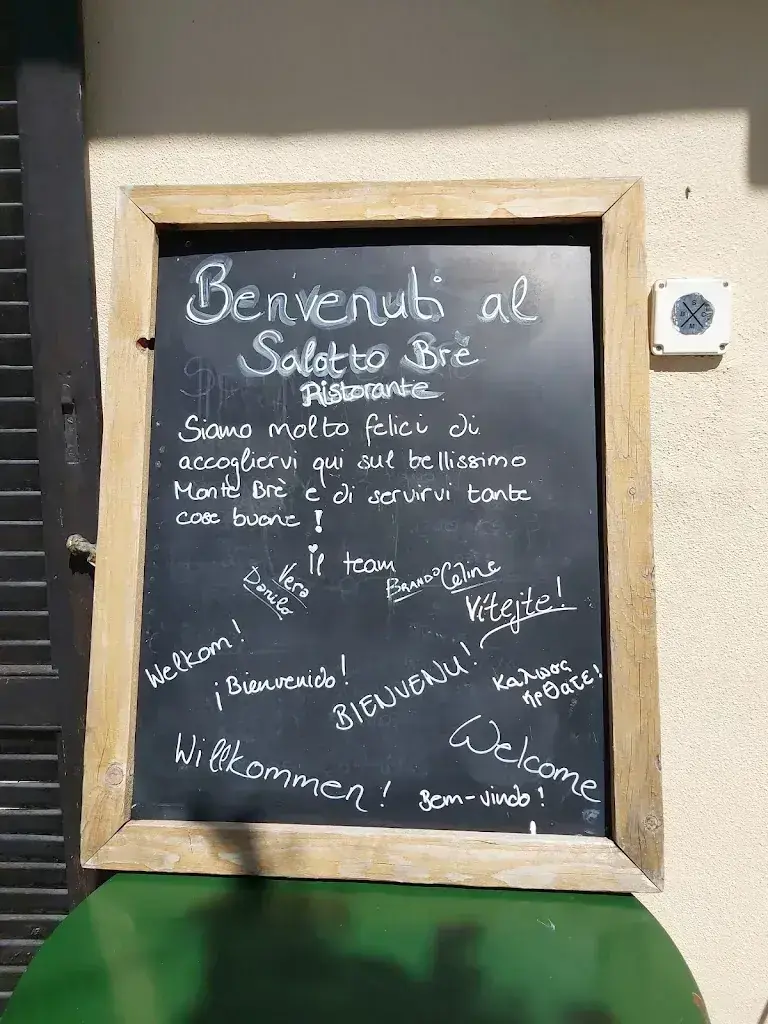 Benvenuti al
Salotto Brè
Ristorante
Siamo molto felici di
accogliervi qui sul bellissimo
Monte Brè e di servirvi tante
cose buone !
il team
Danilo
Vera
BRANDO
Celine
Vítejte!
Welkom!
¡Bienvenido!
BIENVENU!
Καλωσ
ήρθατε!
Willkommen!
Welcome
Bem-vindo!
S
B
C
M